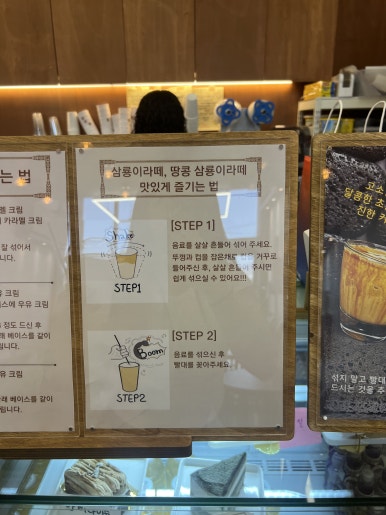 는 법
크림
카라멜 크림
잘 섞어서
니다.
유 크림
스에 우유 크림
정도 드신 후
래 베이스를 같이
립니다.
유 크림
래 베이스를 같이
립니다.
삼룡이라떼, 땅콩 삼룡이라떼
맛있게 즐기는 법
Shake
STEP1
[STEP 1]
음료를 살살 흔들어 섞어 주세요.
뚜껑과 컵을 잡은채로 컵을 거꾸로
들어주신 후, 살살 흔들어 주시면
쉽게 섞으실 수 있어요!!!
Boom
STEP2
[STEP 2]
음료를 섞으신 후
빨대를 꽂아주세요.
고소
달콤한 초
진한 카
섞지 말고 빨대
드시는 것을 추